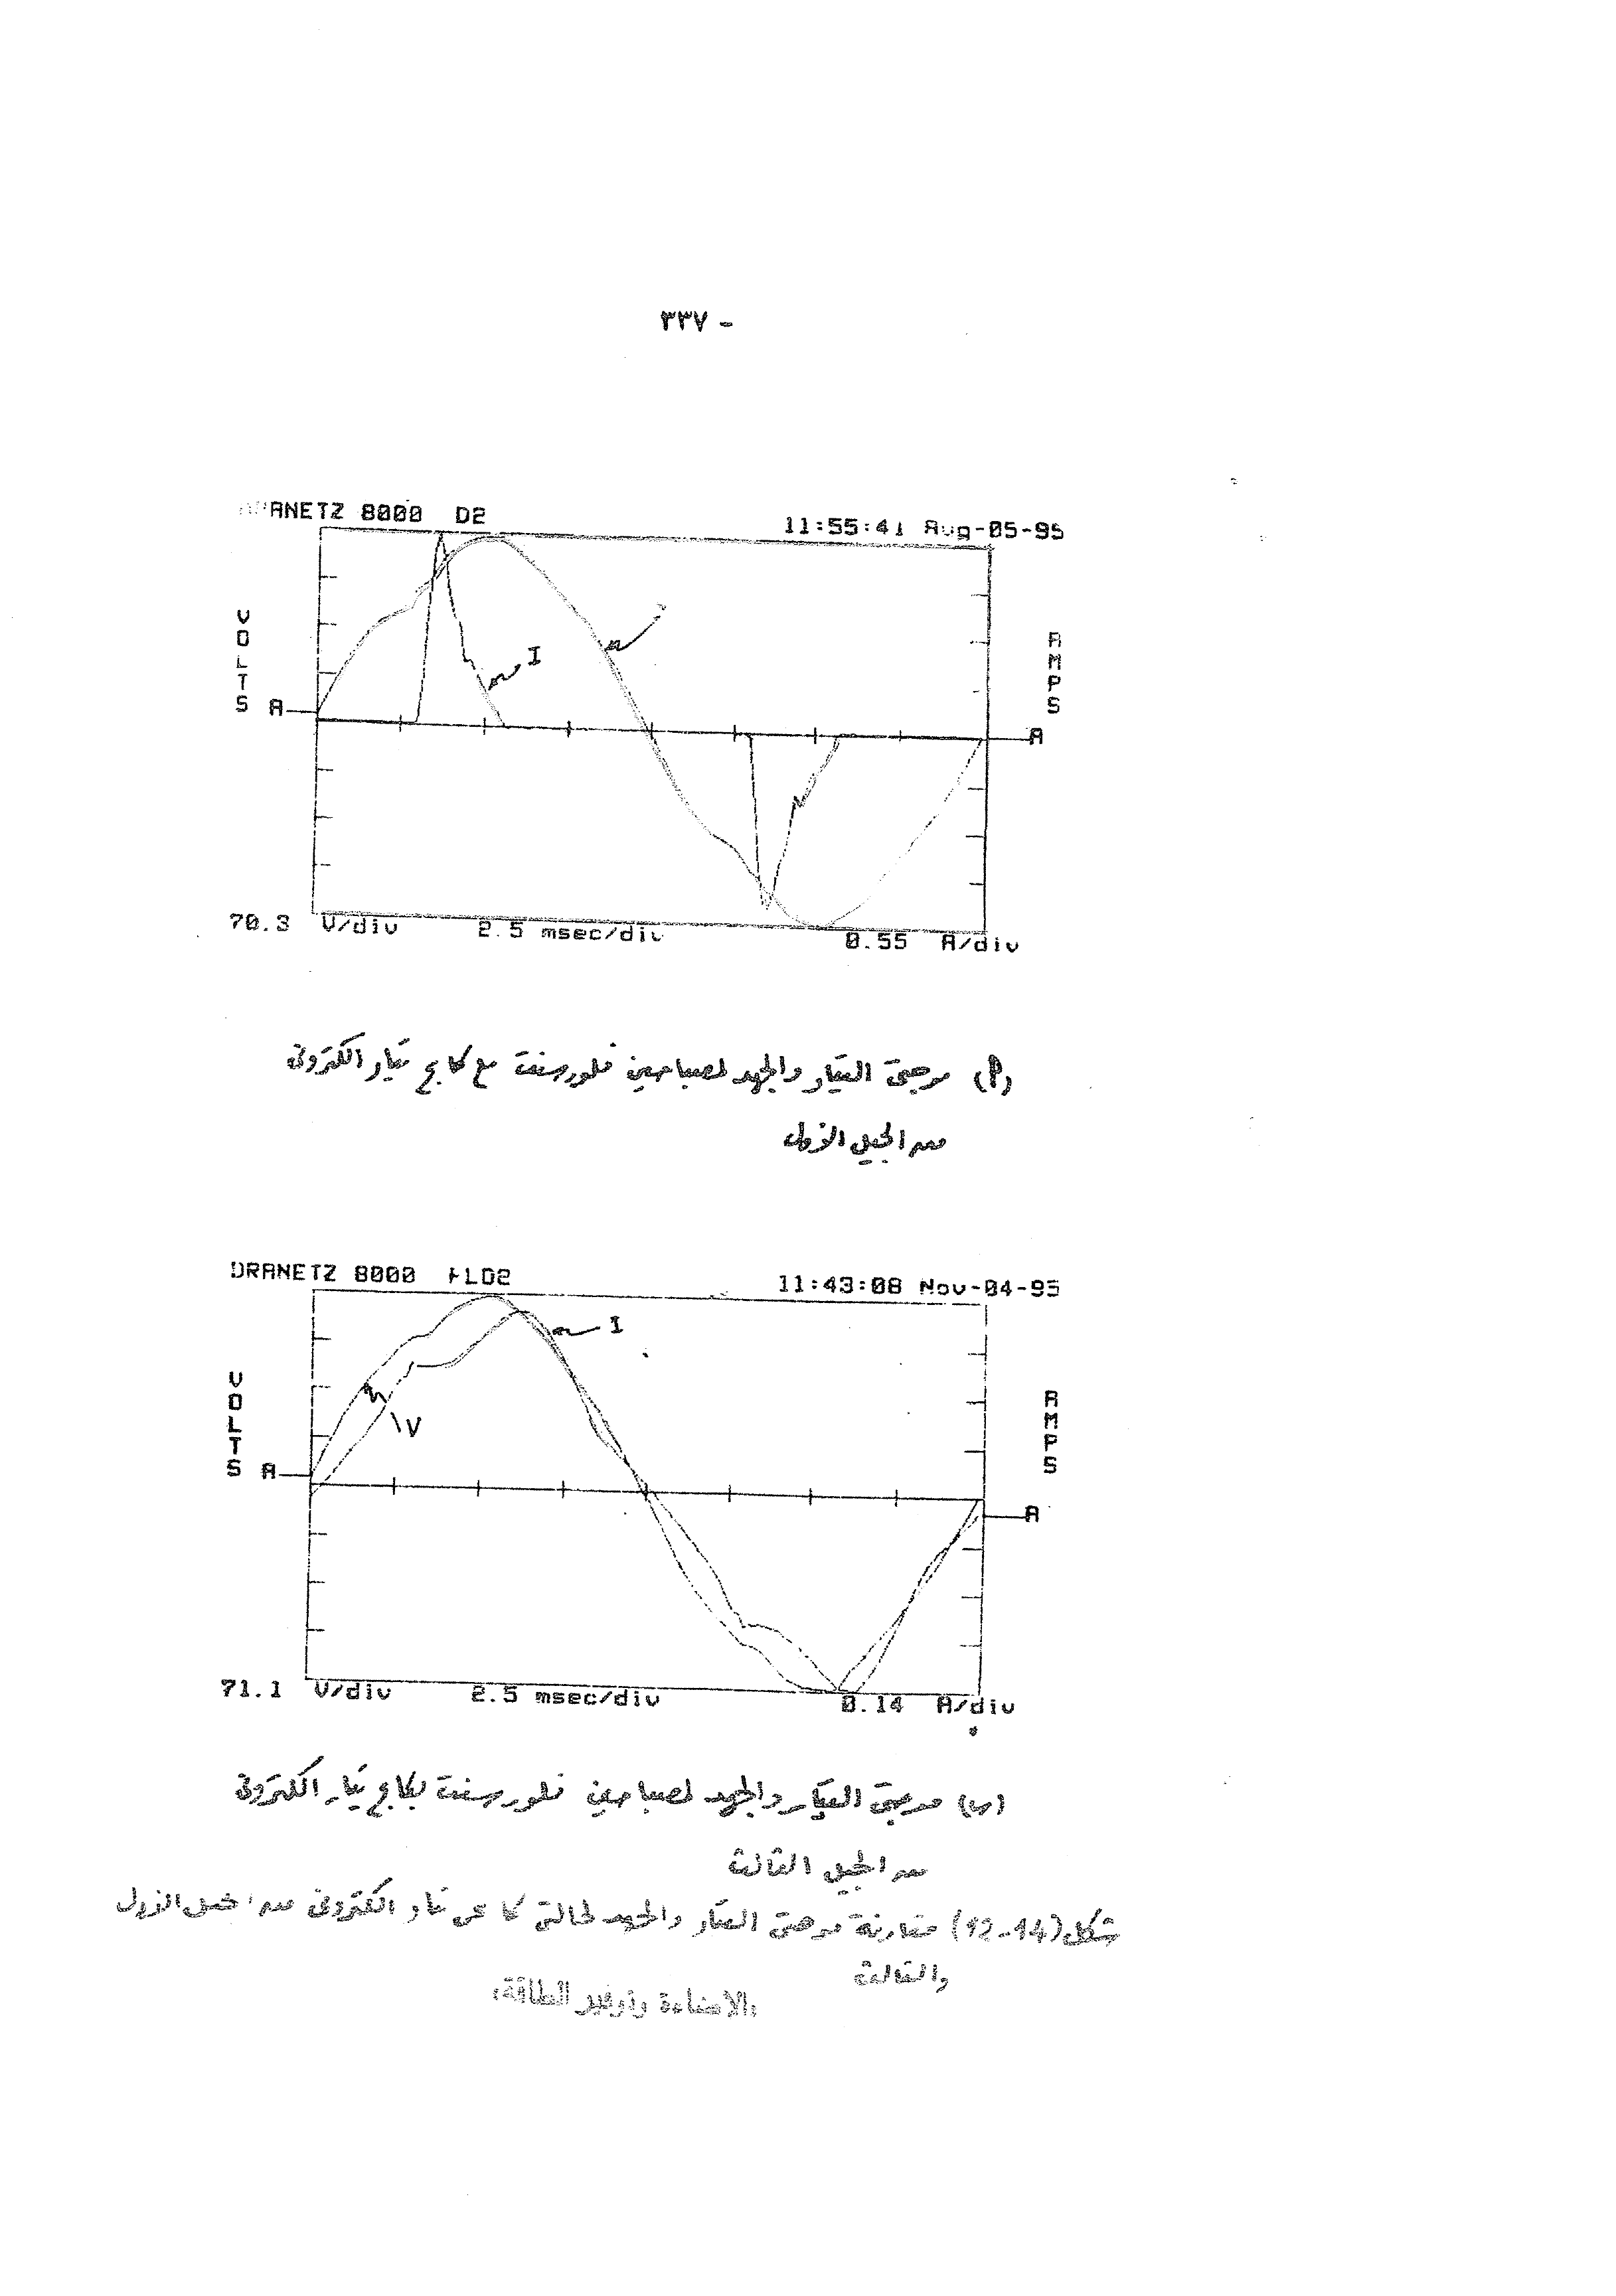 ٣٣٧ -
DRANETZ 8000 D2 11:55:41 Aug-05-95
VOLTS
AMPS
I
A
A
70.3 V/div 2.5 msec/div 0.55 A/div
(أ) موجتى التيار والجهد لمصباحين فلورسنت مع كابح تيار الكترونى
من الجيل الأول
DRANETZ 8000 FLD2 11:43:08 Nov-04-95
I
V
VOLTS
AMPS
A
A
71.1 V/div 2.5 msec/div 0.14 A/div
(ب) موجتى التيار والجهد لمصباحين فلورسنت بكابح تيار الكترونى
من الجيل الثالث
شكل (12-14) مقارنة موجتى التيار والجهد لحالتى كابحى تيار الكترونى من الجيل الأول
والثالث
"الإضاءة وتوفير الطاقة"